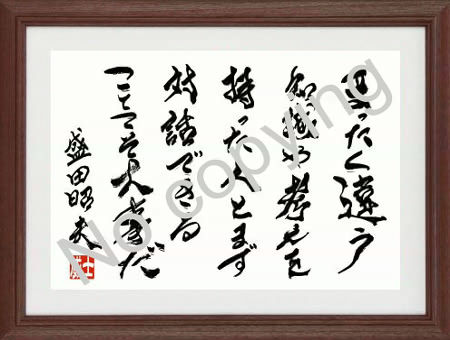 まったく違う
知識や考えを
持った人とまず
対話できる
ことこそ大事だ
盛田昭夫
No copying